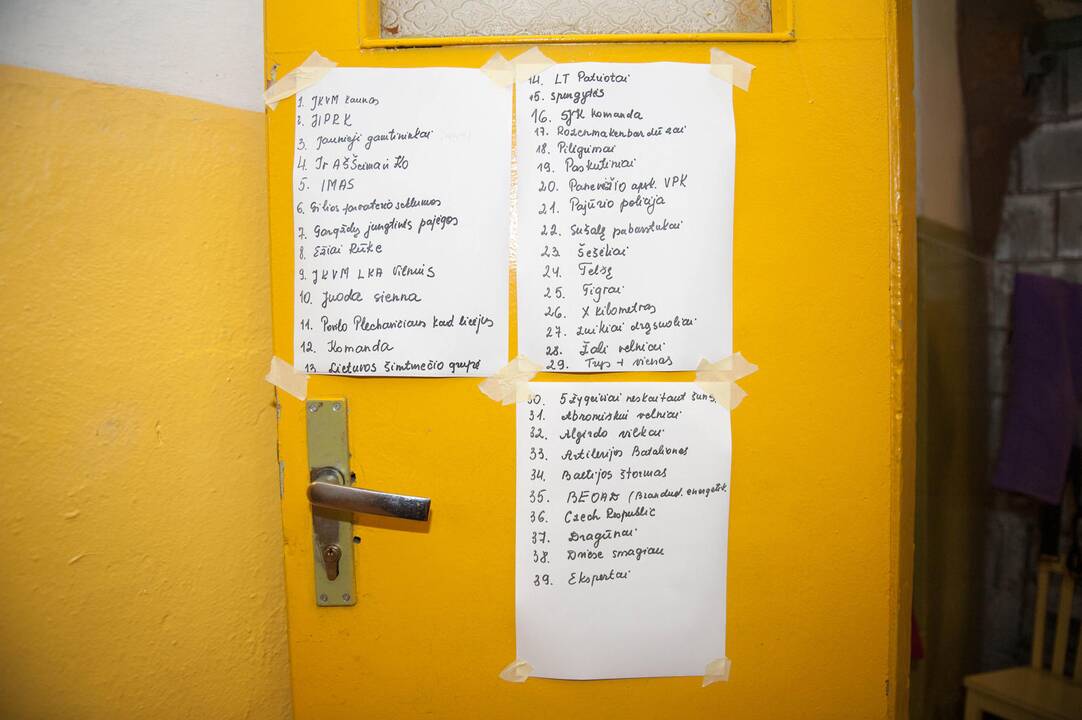 1. JKVM Kaunas
2. JIPRK
3. Jaunieji gamtininkai
4. Ir AŠŠeima ir Ko
5. IMAS
6. Gilios
7. Gargždų jungtinės pajėgos
8. Ežiai Rūke
9. JKVM LKA Vilnius
10. Juoda siena
11. Povilo Plechavičiaus kad licėjus
12. Komanda
13. Lietuvos šimtmečio grupė
14. LT Patriotai
15. Spengylės
16. SJK komanda
17.
18. Piligrimai
19. Paskutiniai
20. Panevėžio apsk. VPK
21. Pajūrio policija
22. Sušalę pabarstukai
23. Šešėliai
24. Telšų
25. Tigrai
26. X kilometras
27. Zuikiai drąsuoliai
28. Žali velniai
29. Trys + vienas
30. 5 žygeiviai neskaitant šuns.
31. Abromiškių velniai
32. Algirdo vilkai
33. Artilerijos Batalionas
34. Baltijos štormas
35. BEOAD (Branduol. energetik.
36. Czech Republic
37. Dragūnai
38. Dviese smagiau
39. Ekspertai